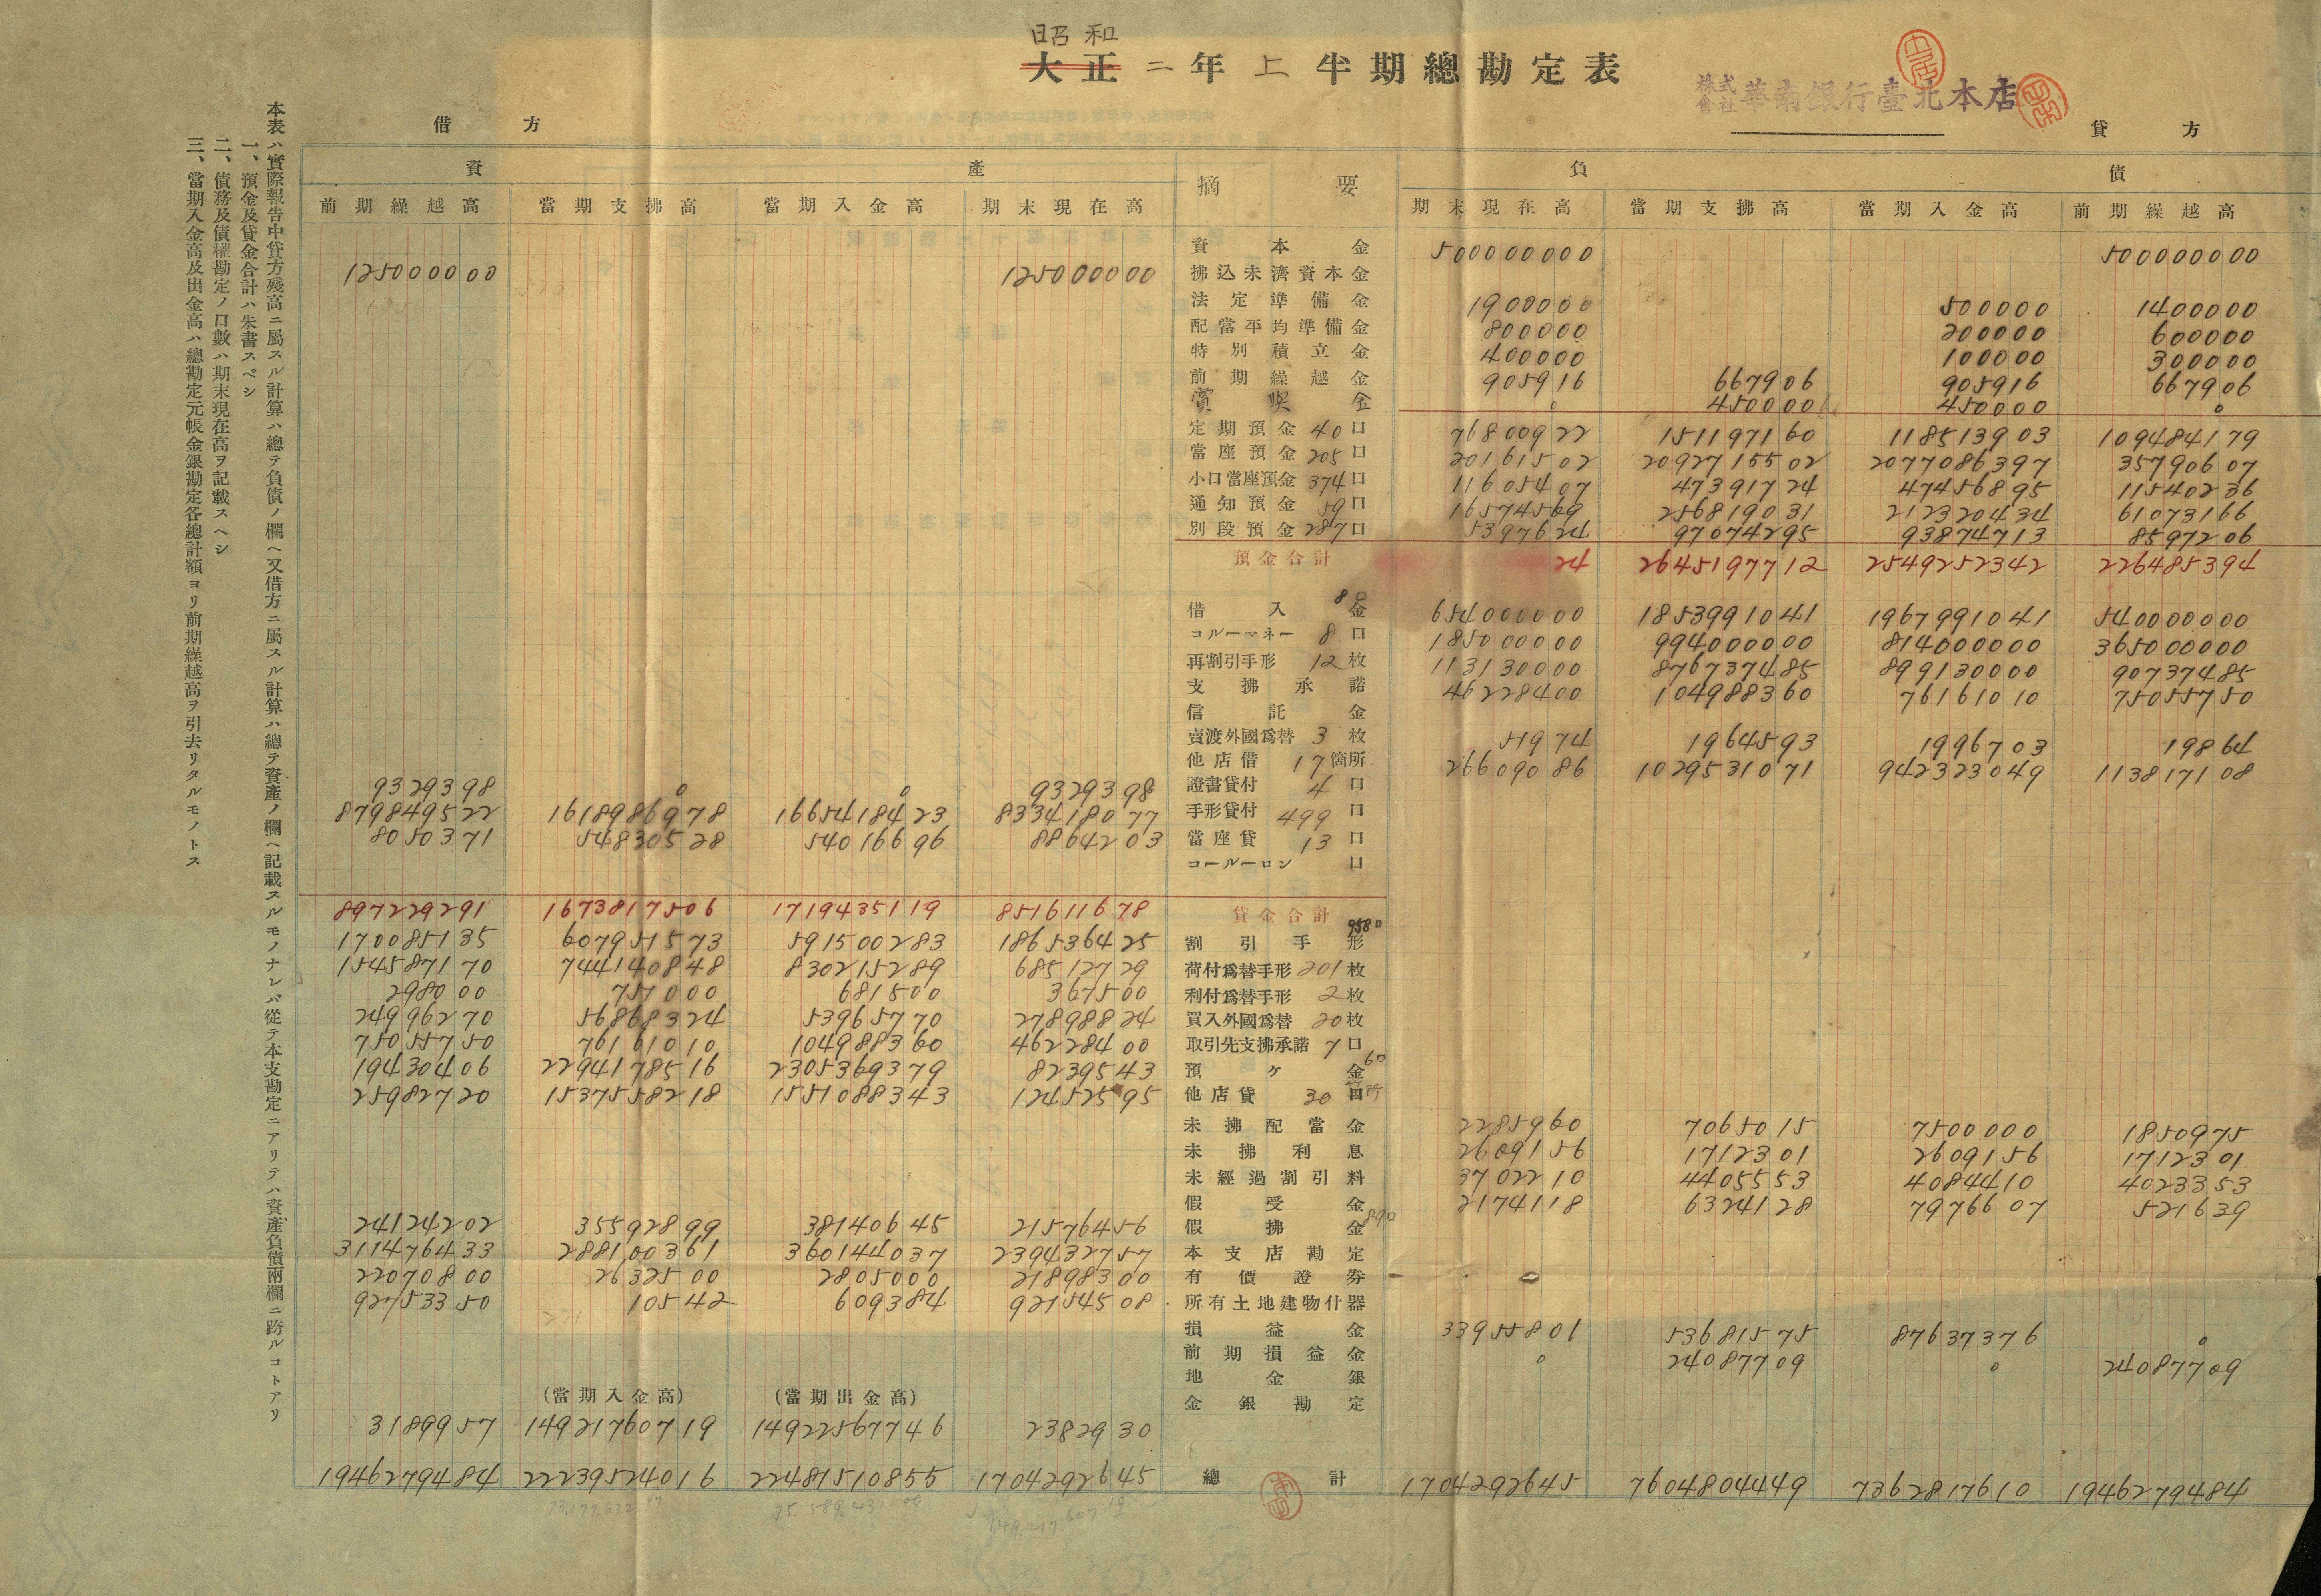 昭和
大正 二年 上 半期總勘定表
株式會社 華南銀行臺北本店
借方
貸方
資產
摘要
負債
前期繰越高 當期支拂高 當期入金高 期末現在高 期末現在高 當期支拂高 當期入金高 前期繰越高
資本金 500000000 500000000
125000000 125000000 拂込未濟資本金
法定準備金 1900000 500000 1400000
配當平均準備金 800000 200000 600000
特別積立金 400000 100000 300000
前期繰越金 905916 667906 905916 667906
賞奬金 0 450000 450000 0
定期預金 40口 76800922 151197160 118513903 109484179
當座預金 205口 20161502 2092715502 2077086397 35790607
小口當座預金 374口 11605407 47391724 47456895 11540236
通知預金 59口 16574569 256819031 212320434 61073166
別段預金 287口 5397624 97074295 93874713 8597206
預金合計 24 2645197712 2549252342 226485394
借入金 8口 654000000 1853991041 1967991041 540000000
コルーマネー 8口 185000000 994000000 814000000 365000000
再割引手形 12枚 113130000 876737485 899130000 90737485
支拂承諾 46228400 104988360 76161010 75055750
信託金
賣渡外國爲替 3枚 51974 1964593 1996703 19864
他店借 17箇所 26609086 1029531071 942323049 113817108
9329398 0 0 9329398 證書貸付 4口
879849522 1618986978 1665418423 833418077 手形貸付 499口
8050371 54830528 54016696 8864203 當座貸 13口
コールーロン 口
897229291 1673817506 1719435119 851611678 貸金合計
170085135 607951573 591500283 186536425 割引手形 958口
154587170 744140848 830215289 68512729 荷付爲替手形 201枚
298000 751000 681500 367500 利付爲替手形 2枚
24996270 56868324 53965770 27898824 買入外國爲替 20枚
75055750 76161010 104988360 46228400 取引先支拂承諾 7口
19430406 2294178516 2305369379 8239543 預ケ金 6口
25982720 1537558218 1551088343 12452595 他店貸 30口
未拂配當金 2285960 7065015 7500000 1850975
未拂利息 2609156 1712301 2609156 1712301
未經過割引料 3702210 4405553 4084410 4023353
假受金 2174118 6324128 7976607 521639
24124202 35592899 38140645 21576456 假拂金 89口
311476433 288100361 360144037 239432757 本支店勘定
22070800 2632500 2805000 21898300 有價證券
92753350 10542 609384 92154508 所有土地建物什器
損益金 33955801 53681575 87637376 0
前期損益金 0 24087709 0 24087709
地金銀
(當期入金高) (當期出金高) 金銀勘定
3189957 14921760719 14922567746 2382930
1946279484 22239524016 22481510855 1704292645 總計 1704292645 7604804449 7362817610 1946279484
本表ハ實際報告中貸方殘高ニ屬スル計算ハ總テ負債ノ欄ヘ又借方ニ屬スル計算ハ總テ資產ノ欄ヘ記載スルモノナレバ從テ本支勘定ニアリテハ資產負債兩欄ニ跨ルコトアリ
一、預金及貸金合計ハ朱書スベシ
二、債務及債權勘定ノ口數ハ期末現在高ヲ記載スヘシ
三、當期入金高及出金高ハ總勘定元帳金銀勘定各總計額ヨリ前期繰越高ヲ引去リタルモノトス